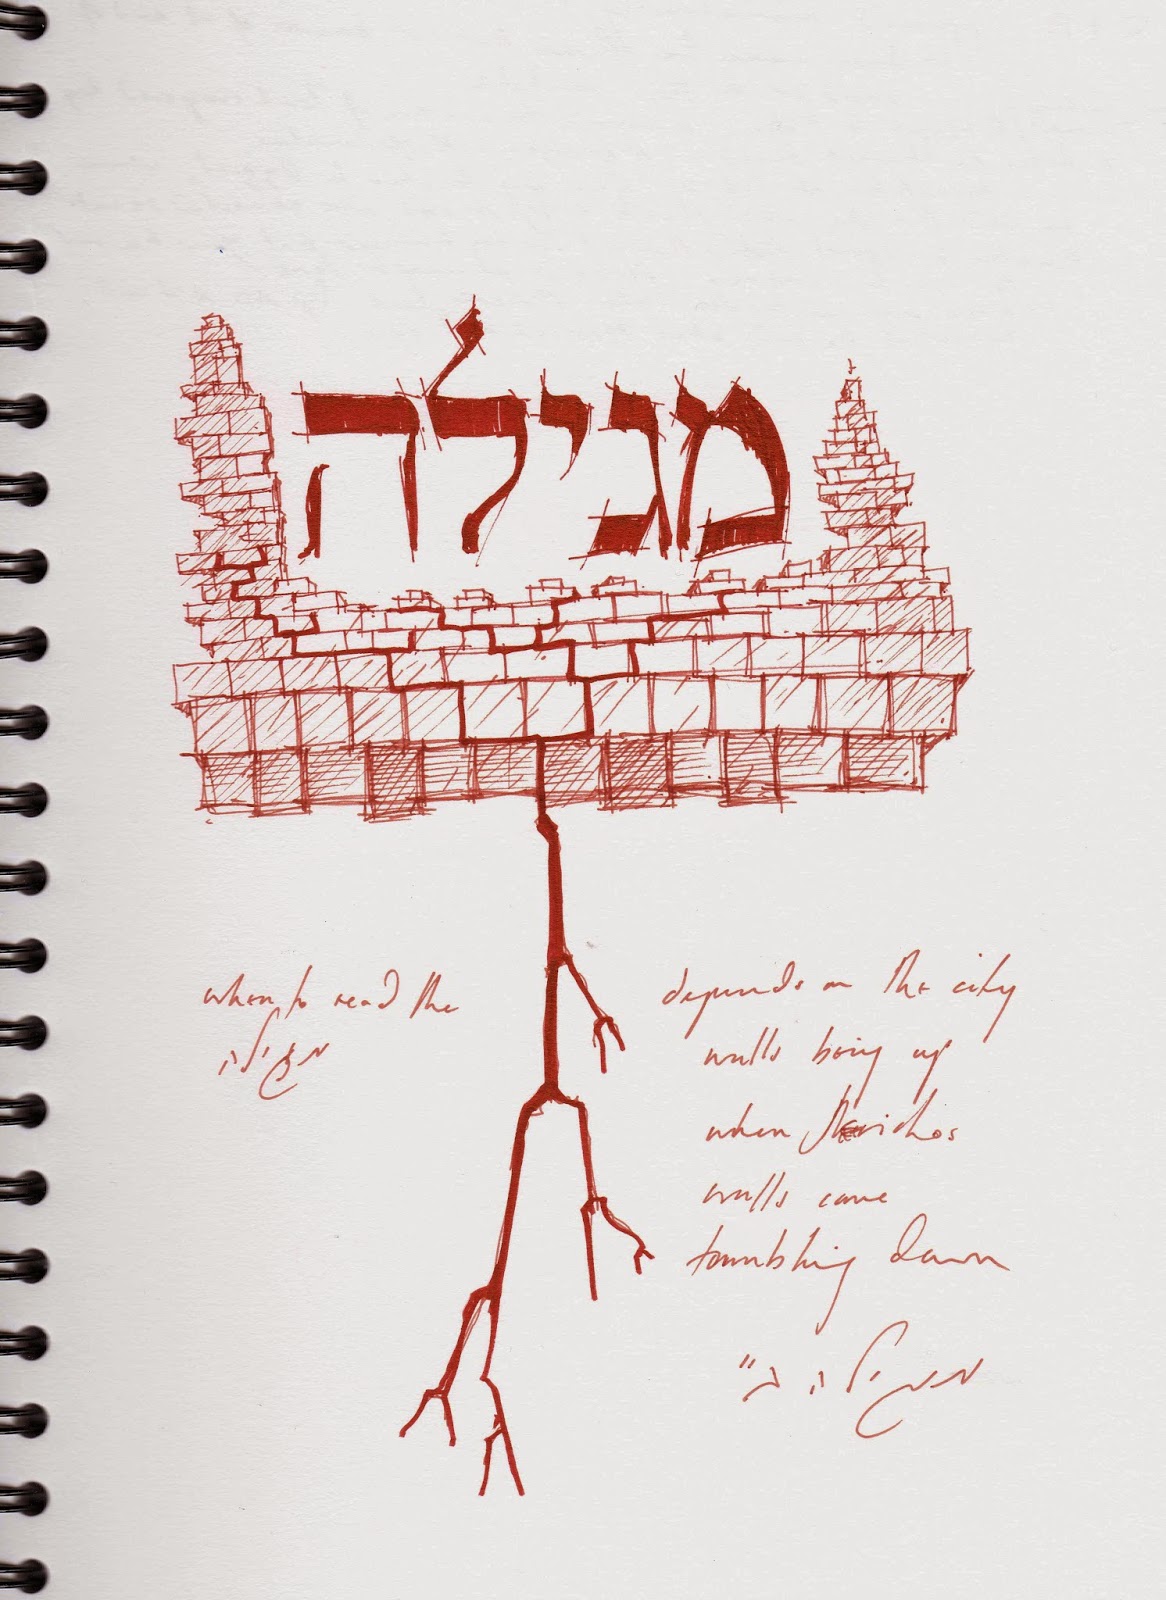 מגילה
when to read the
מגילה
depends on the city
walls being up
when Jerichos
walls came
tumbling down
מגילה ב"